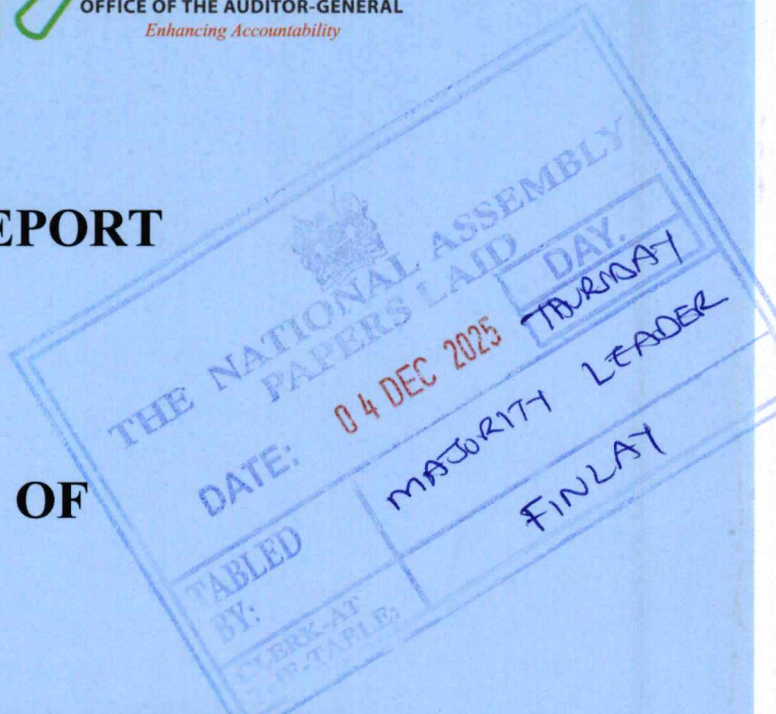 OFFICE OF THE AUDITOR-GENERAL
Enhancing Accountability
EPORT
OF
THE NATIONAL ASSEMBLY
PAPERS LAID
DATE: 04 DEC 2025
DAY.
THURSDAY
TABLED
BY:
MAJORITY LEADER
CLERK-AT
THE-TABLE:
FINLAY